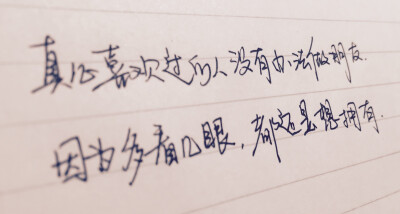 真正喜欢过的人没有办法做朋友.
因为多看几眼,都还是想拥有.